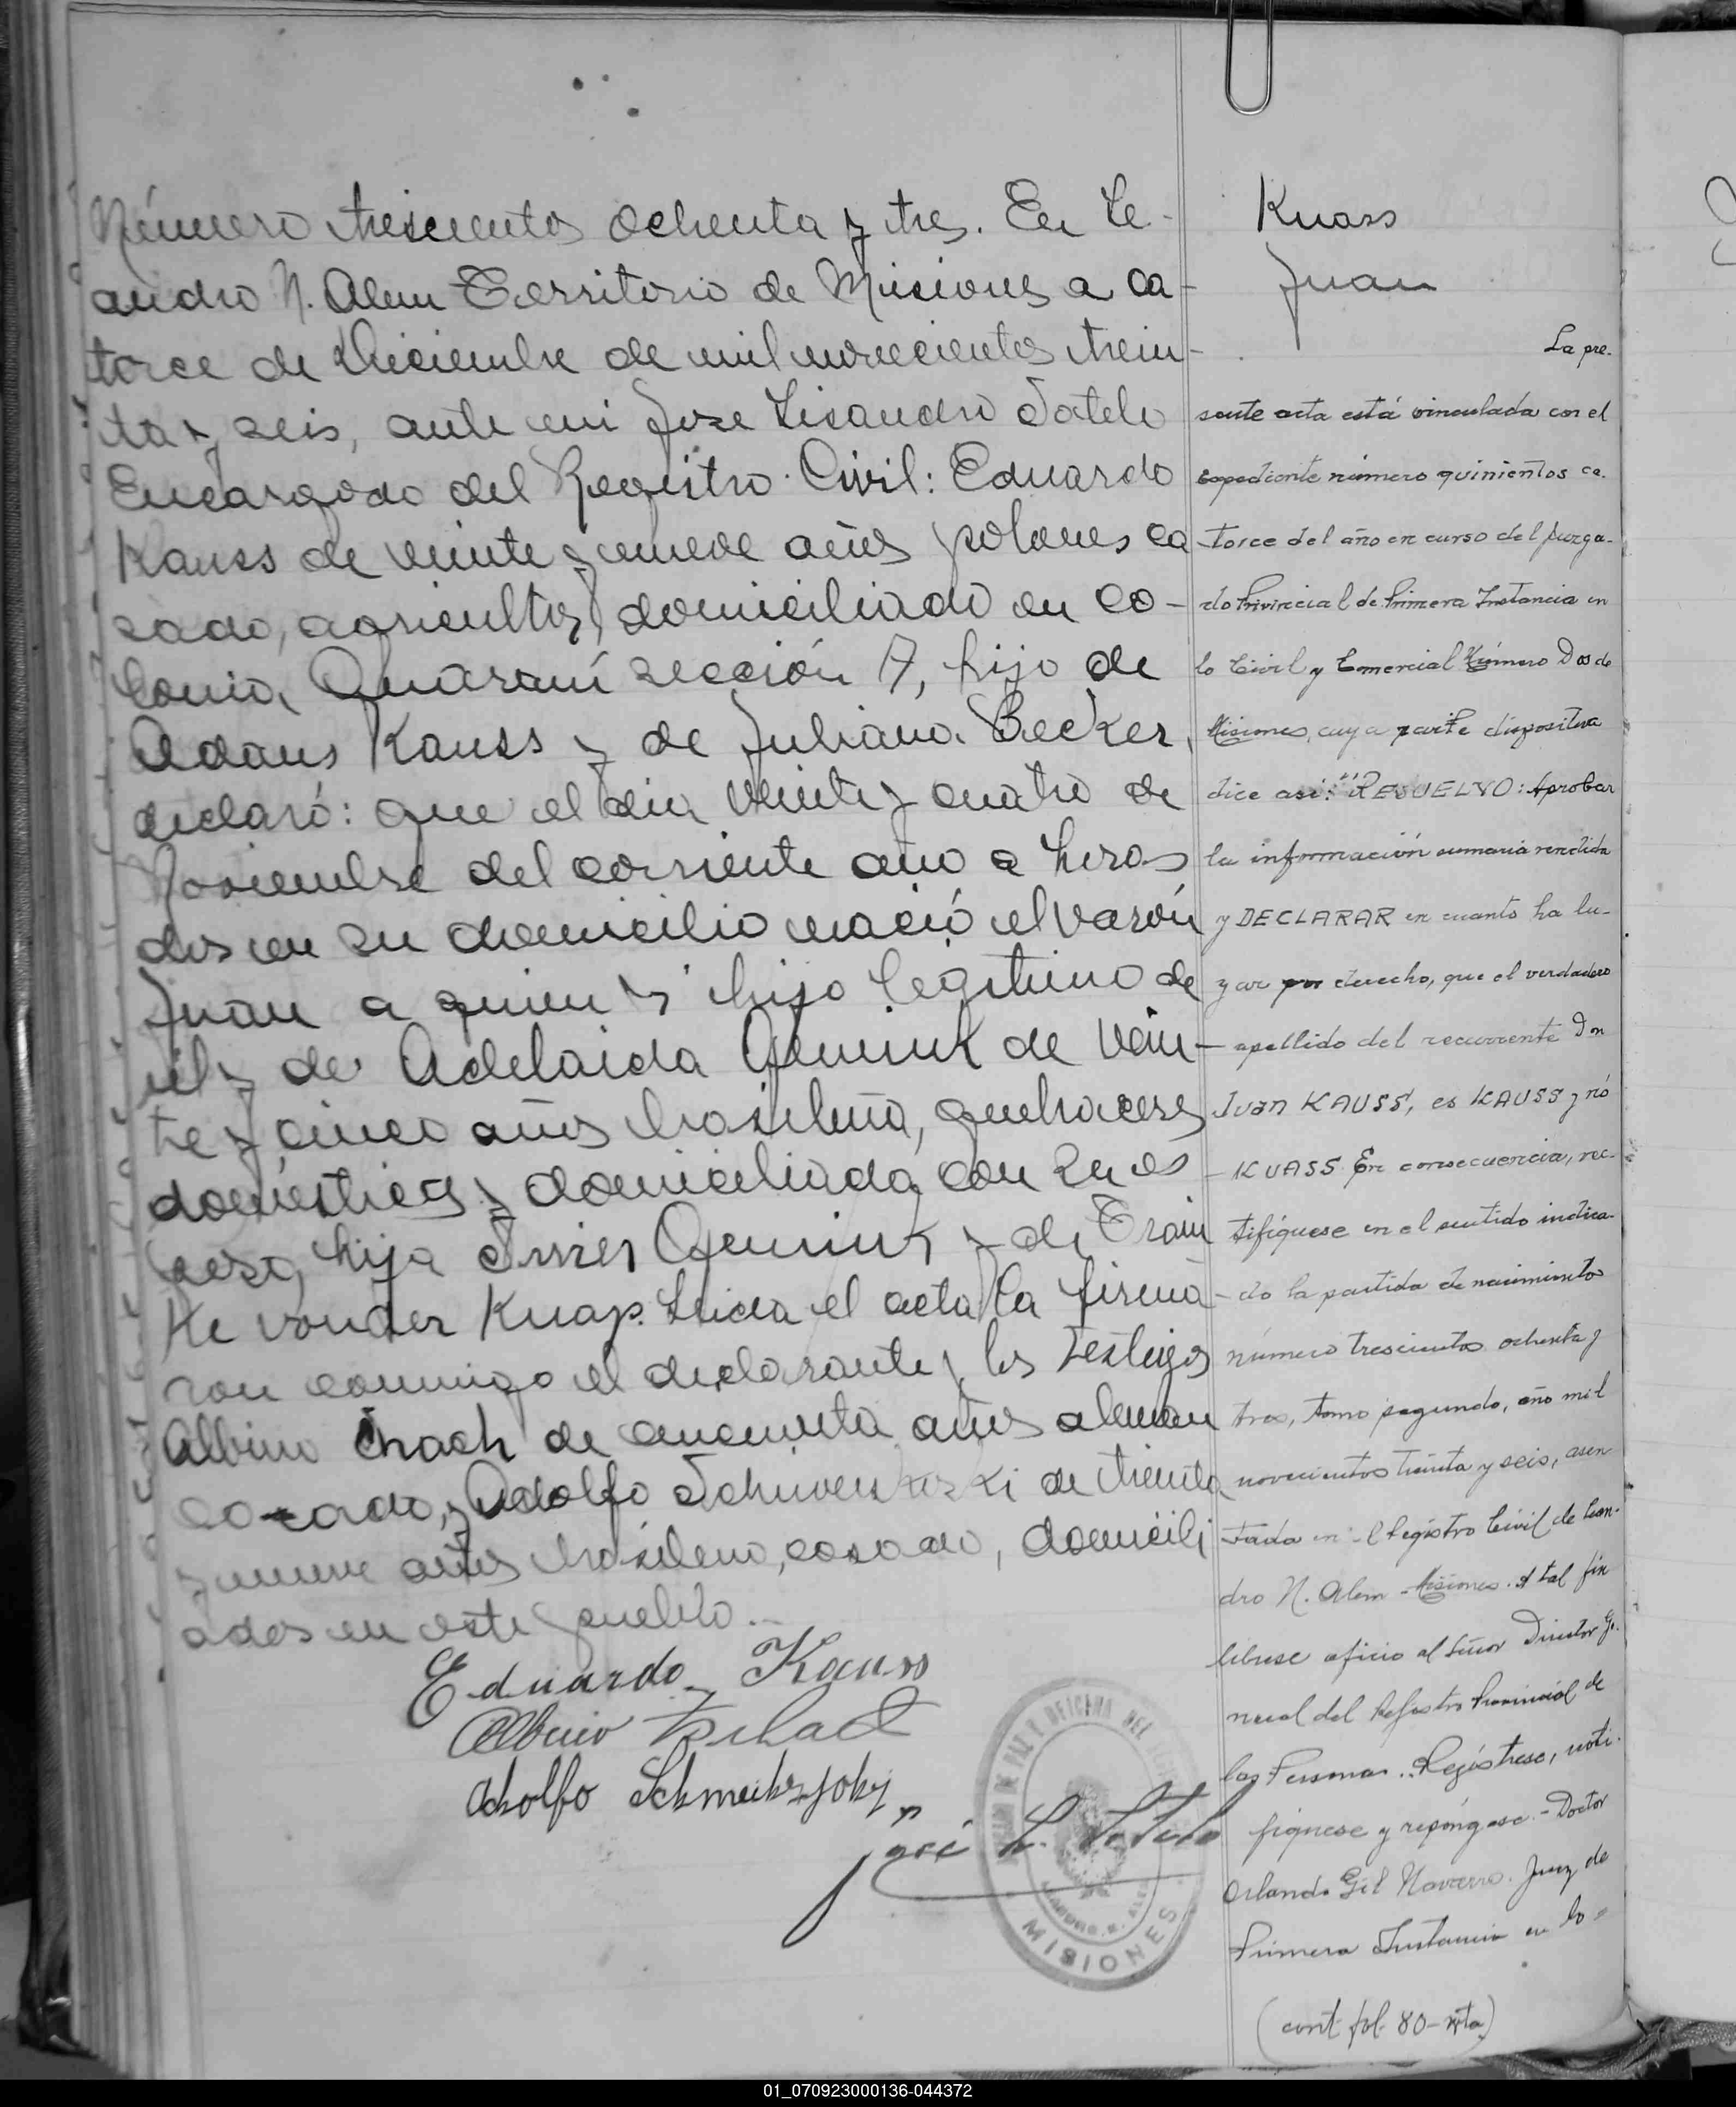 Número trescientos ochenta y tres. En Le-
andro N. Alem Territorio de Misiones a ca-
torce de Diciembre de mil novecientos trein-
ta y seis, ante mi Jose Lisandro Sotelo
Encargado del Registro Civil: Eduardo
Kauss de veinte y nueve años polones ca
sado, agricultor, domiciliado en co-
lonia Guaraní sección 7, hijo de
Adans Kauss y de Juliana Becker,
declaró: que el dia veinte y cuatro de
Noviembre del corriente año a horas
dos en su domicilio nació el varón
Juan a quien y hijo legitimo de
el y de Adelaida de vein-
te y cinco años brasileña, quehaceres
domésticos y domiciliada con su es
poso, hija de
ke vonder Knap. Leida el acta la firma-
ron conmigo el declarante y los testigos
Albino de cincuenta años aleman
casado, y Adolfo de treinta
y nueve años brasileno, casado, domicili
ados en este pueblo.-
Eduardo Kauss
Albino
Adolfo
José L. Sotelo
MISIONES
Kuass
Juan
La pre-
sente acta está vinculada con el
expediente número quinientos ca-
torce del año en curso del Juzga-
do Provincial de Primera Instancia en
lo Civil y Comercial Número Dos de
Misiones, cuya parte dispositiva
dice asi: "RESUELVO: Aprobar
la información sumaria rendida
y DECLARAR en cuanto ha lu-
gar por derecho, que el verdadero
apellido del recurrente Don
Juan KAUSS, es KAUSS y nó
KUASS. En consecuencia, rec-
tifíquese en el sentido indica-
do la partida de nacimiento
número trescientos ochenta y
tres, tomo segundo, año mil
novecientos treinta y seis, asen
tada en el Registro Civil de Lean-
dro N. Alem - Misiones. A tal fin
líbrese oficio al Señor Director Ge-
neral del Registro Provincial de
las Personas. Regístrese, noti-
fíquese y repóngase.- Doctor
Orlando Gil Navarro. Juez de
Primera Instancia en lo
(cont. fol. 80-vta)
01_070923000136-044372